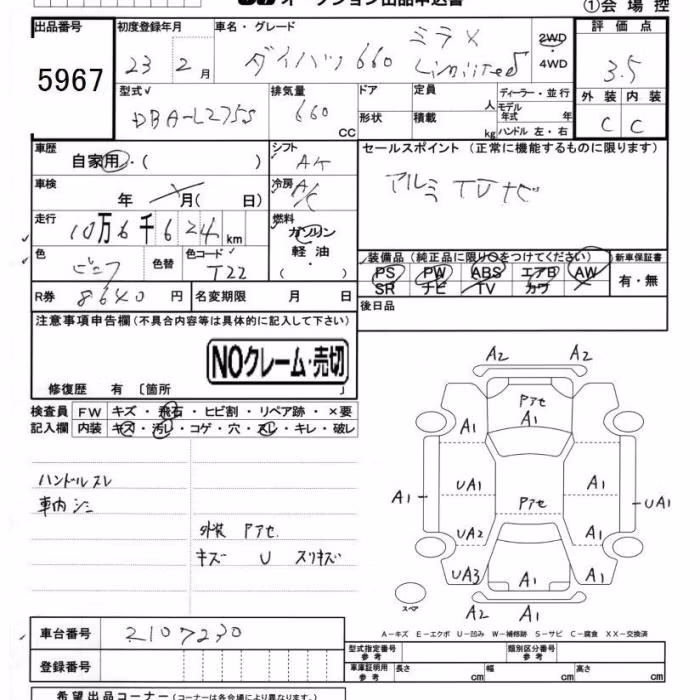 オークション出品申込書
①会場控
出品番号 初度登録年月 車名・グレード 評価点
5967 23 2月 ダイハツ 660 ミラX Limited 2WD・4WD 3.5
型式 排気量 ドア 定員 人 ディーラー・並行 外装 内装
DBA-L275S 660 CC 形状 積載 kg モデル年式 年 ハンドル 左・右 C C
車歴 自家用・( ) シフト AT セールスポイント(正常に機能するものに限ります)
車検 年 月( 日) 冷房 A/C アルミ TV ナビ
走行 10万6千624km 燃料 ガソリン・軽油・( )
色 色替 色コード T22 装備品(純正品に限り○をつけてください) 新車保証書
PS PW ABS エアB AW 有・無
SR ナビ TV カワ
R券 8640円 名変期限 月 日 後日品
注意事項申告欄(不具合内容等は具体的に記入して下さい)
NOクレーム・売切
修復歴 有 〔箇所 〕
検査員 FW キズ・飛石・ヒビ割・リペア跡・×要
記入欄 内装 キズ・汚レ・コゲ・穴・スレ・キレ・破レ
ハンドルスレ
車内シミ
外装 Pアセ
キズ U スリキズ
A2 A2
Pアセ
A1 A1
A1 UA1 A1 UA1
Pアセ
UA2 A1
UA3 A1 A1
スペア A2 A1
A-キズ E-エクボ U-凹み W-補修跡 S-サビ C-腐食 XX-交換済
車台番号 2107230
型式指定番号 参考 類別区分番号 参考
登録番号
車庫証明用 参考 長さ cm 幅 cm 高さ cm
希望出品コーナー(コーナーは各会場により異なります。)